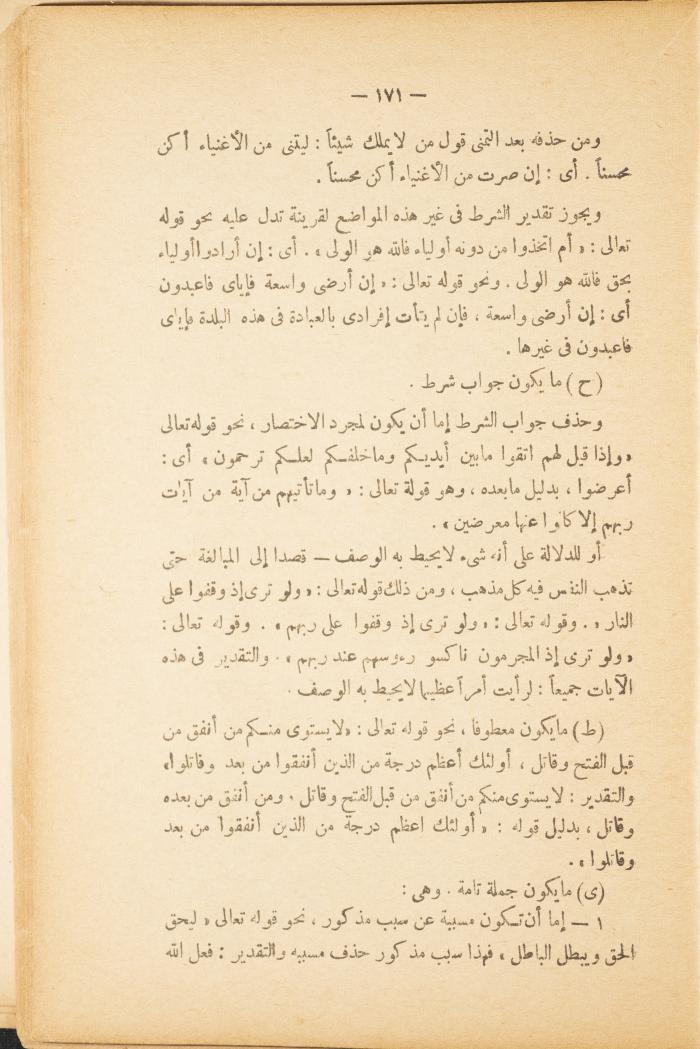 — ١٧١ —
ومن حذفه بعد التمنى قول من لا يملك شيئاً : ليتنى من الأغنياء أكن
محسناً . أى : إن صرت من الأغنياء أكن محسناً .
ويجوز تقدير الشرط فى غير هذه المواضع لقرينة تدل عليه نحو قوله
تعالى : « أم اتخذوا من دونه أولياء فالله هو الولى » . أى : إن أرادوا أولياء
بحق فالله هو الولى . ونحو قوله تعالى : « إن أرضى واسعة فإياى فاعبدون
أى : إن أرضى واسعة ، فإن لم يتأت إفرادى بالعبادة فى هذه البلدة فإياى
فاعبدون فى غيرها .
( ح ) ما يكون جواب شرط .
وحذف جواب الشرط إما أن يكون لمجرد الاختصار ، نحو قوله تعالى
« وإذا قيل لهم اتقوا ما بين أيديكم وما خلفكم لعلكم ترحمون » أى :
أعرضوا ، بدليل ما بعده ، وهو قولة تعالى : « وما تأتيهم من آية من آيات
ربهم إلا كانوا عنها معرضين » .
أو للدلالة على أنه شىء لا يحيط به الوصف — قصدا إلى المبالغة حتى
تذهب النفس فيه كل مذهب ، ومن ذلك قوله تعالى : « ولو ترى إذ وقفوا على
النار » . وقوله تعالى : « ولو ترى إذ وقفوا على ربهم » . وقوله تعالى :
« ولو ترى إذ المجرمون ناكسو رءوسهم عند ربهم » . والتقدير فى هذه
الآيات جميعاً : لرأيت أمراً عظيما لا يحيط به الوصف .
( ط ) ما يكون معطوفا ، نحو قوله تعالى : « لا يستوى منكم من أنفق من
قبل الفتح وقاتل ، أولئك أعظم درجة من الذين أنفقوا من بعد وقاتلوا »
والتقدير : لا يستوى منكم من أنفق من قبل الفتح وقاتل . ومن أنفق من بعده
وقاتل ، بدليل قوله : « أولئك اعظم درجة من الذين أنفقوا من بعد
وقاتلوا » .
( ى ) ما يكون جملة تامة . وهى :
١ — إما أن تكون مسببة عن سبب مذكور ، نحو قوله تعالى « ليحق
الحق ويبطل الباطل » فهذا سبب مذكور حذف مسببه والتقدير : فعل الله